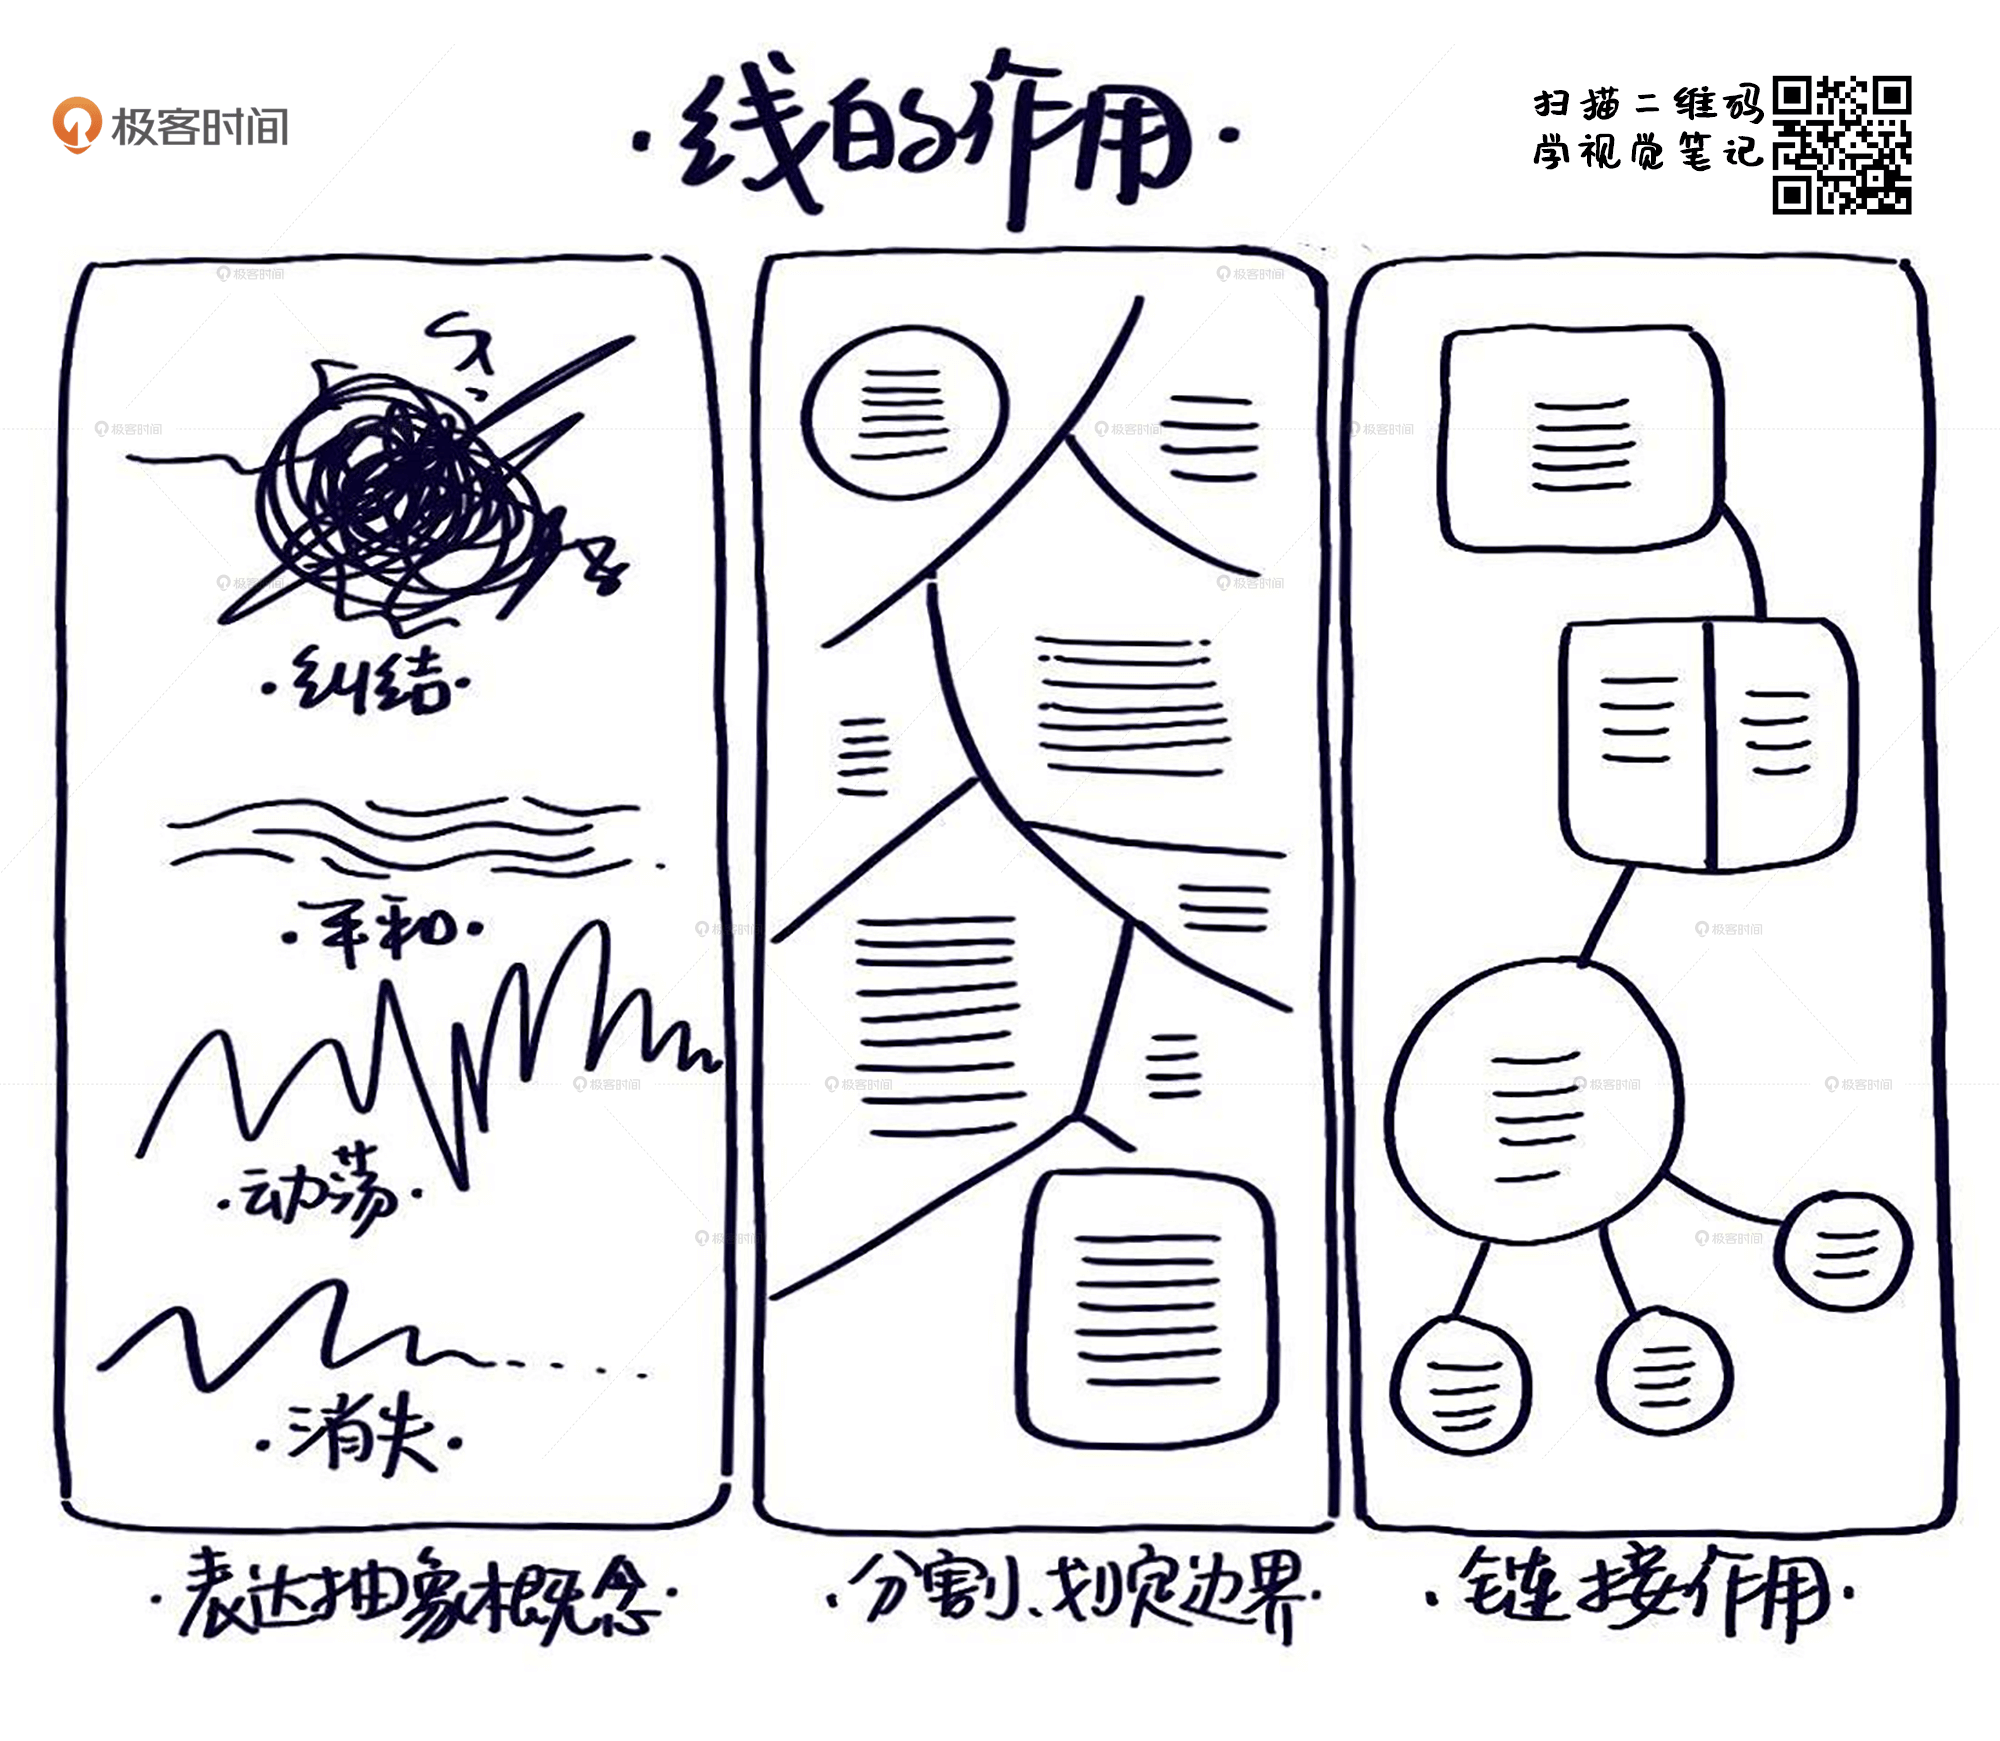 极客时间
·线的作用·
扫描二维码
学视觉笔记
·纠结·
·平和·
·动荡·
·消失·
·表达抽象概念·
·分割、划定边界·
·链接作用·